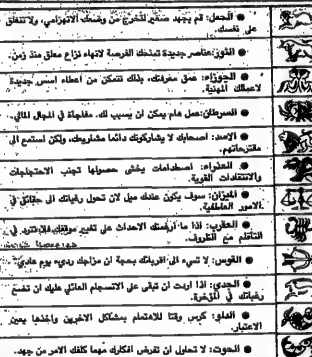 ● الحمل: قم بجهد صغير لتخرج من وضعك الانهزامي، ولا تنغلق
على نفسك.
● الثور: عناصر جديدة تمنحك الفرصة لانهاء نزاع معلق منذ زمن.
● الجوزاء: عمق معرفتك، بذلك تتمكن من اعطاء اسس جديدة
لاعمالك المهنية.
● السرطان: عمل هام يمكن ان يسبب لك. مفاجأة في المجال المالي.
● الاسد: اصحابك لا يشاركونك دائما مشاريعك، ولكن استمع الى
مقترحاتهم.
● العذراء: اصطدامات يخشى حصولها تجنب الاحتجاجات
والانتقادات القوية.
● الميزان: سوف يكون عندك ميل لان تحول رغباتك الى حقائق في
الامور العاطفية.
● العقرب: اذا ما ارغمتك الاحداث على تغيير موقفك فلا تتردد في
التأقلم مع الظروف.
● القوس: لا تسيء الى اقربائك بحجة ان مزاجك رديء يوم هادئ.
● الجدي: اذا اردت ان تبقى على الانسجام العائلي عليك ان تضع
رغباتك في المؤخرة.
● الدلو: كرس وقتا للاهتمام بمشاكل الاخرين واخذها بعين
الاعتبار.
● الحوت: لا تحاول ان تفرض افكارك مهما كلفك الامر من جهد.